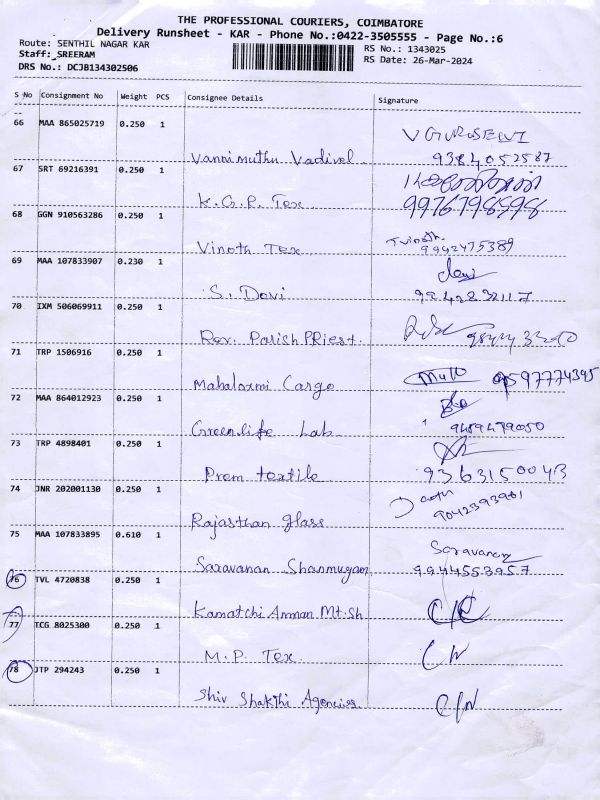 THE PROFESSIONAL COURIERS, COIMBATORE
Delivery Runsheet - KAR - Phone No.:0422-3505555 - Page No.:6
Route: SENTHIL NAGAR KAR
RS No.: 1343025
Staff: SREERAM
RS Date: 26-Mar-2024
DRS No.: DCJB134302506
S No Consignment No Weight PCS Consignee Details Signature
--
66 MAA 865025719 0.250 1
V GURUSELVI
Vannimuthu Vadivel 9384052587
67 SRT 69216391 0.250 1
K.G.R. Tex 9976798598
68 GGN 910563286 0.250 1
T vinoth
Vinoth Tex 9942475389
69 MAA 107833907 0.230 1
Devi
S. Devi
70 IXM 506069911 0.250 1
Rev. Parish PRiest
71 TRP 1506916 0.250 1
Mahalaxmi Cargo Muth 9597774395
72 MAA 864012923 0.250 1
Green life Lab 9489479050
73 TRP 4898401 0.250 1
Prem textile 9363150043
74 JNR 202001130 0.250 1
Rajasthan glass 9042393901
75 MAA 107833895 0.610 1
Saravanan
Saravanan Shanmugam 9944553957
76 TVL 4720838 0.250 1
Kamatchi Amman Mt.sh
77 TCG 8025300 0.250 1
M.P. Tex
78 JTP 294243 0.250 1
Shiv Shakthi Agencies